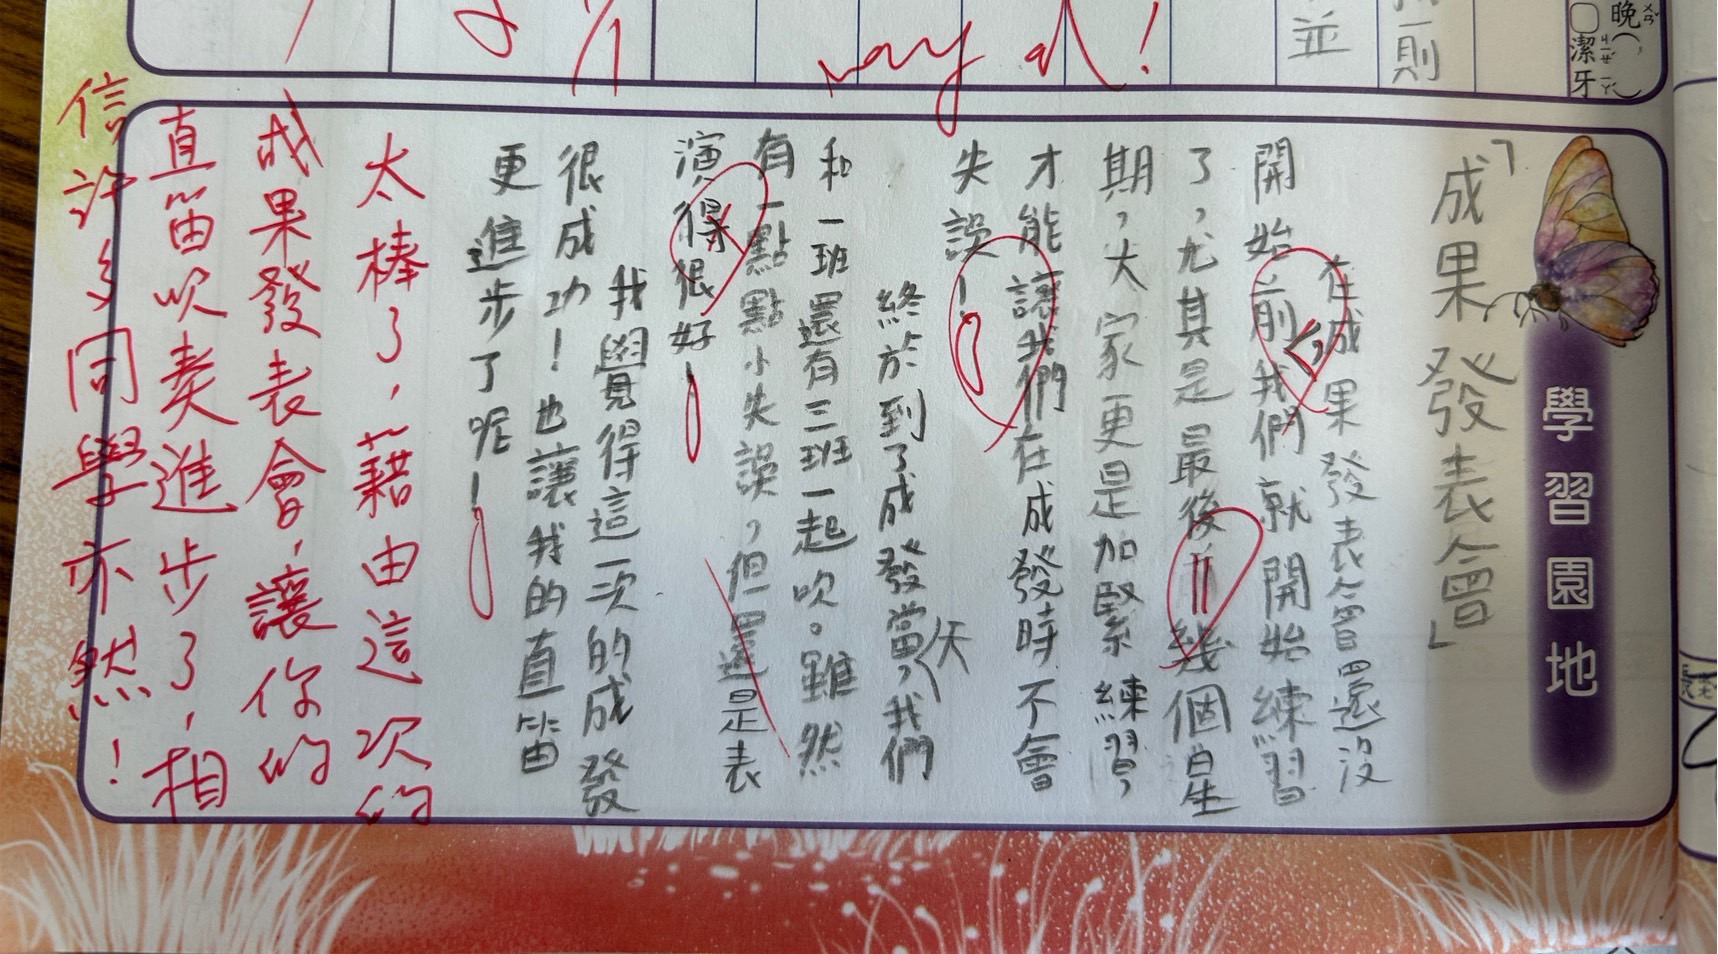 晚
潔
牙
則
並
學習園地
「成果發表會」
在成果發表會還沒
開始前我們就開始練習
了，尤其是最後幾個星
期，大家更是加緊練習，
才能讓我們在成發時不會
失誤！
終於到了成發當天，我們
和一班還有三班一起吹。雖然
有一點點小失誤，但還是表
演得很好！
我覺得這一次的成發
很成功！也讓我的直笛
更進步了呢！
太棒了，藉由這次的
成果發表會，讓你的
直笛吹奏進步了，相
信許多同學亦然！